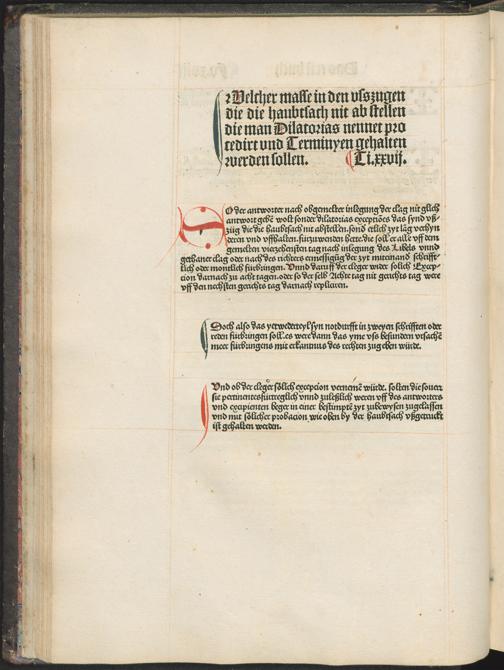 Welcher masse in den vsszugen
die die haubtsach nit ab stellen
die man Dilatorias nennet pro
cedirt vnd Terminyen gehalten
werden sollen. Ti.xxvij.
SO der antworter nach obgemelter inlegung der clag nit glich
antwort gebē wolt sonder dilatorias exceptiōes das synd vß-
züg die die haubtsach nit abstellen. sond etlich zyt lāg verhyn
deren vnd vffhalten. fürzuwenden hette. die soll er alle vff dem
gemelten vierzehensten tag nach inlegung des Libels vnnd
gethaner clag oder nach des richters ermessigūg der zyt miteinand schrifft-
lich oder montlich fürbringen. Vnnd daruff der cleger wider solich Excep-
tion darnach zu acht tagen. oder so der selb Achte tag nit gerichts tag were
vff den nechsten gerichts tag darnach replicieren.
Doch also das yetwederteyl syn notdurfft in zweyen schrifften oder
reden fürbringen soll. es were dann das yme vß besundern vrsachē
meer fürbringens mit erkantnus des rechten zugeben würde.
Vnd ob der cleger sölich excepcion verneinē würde. sollen die souerr
sie pertinentes fürtreglich vnnd zuleßlich weren vff des antworters
vnd excipienten beger in einer bestimptē zyt zubewysen zugelassen
vnd mit sölicher probacion wie oben by der haubtsach vßgetruckt
ist gehalten werden.